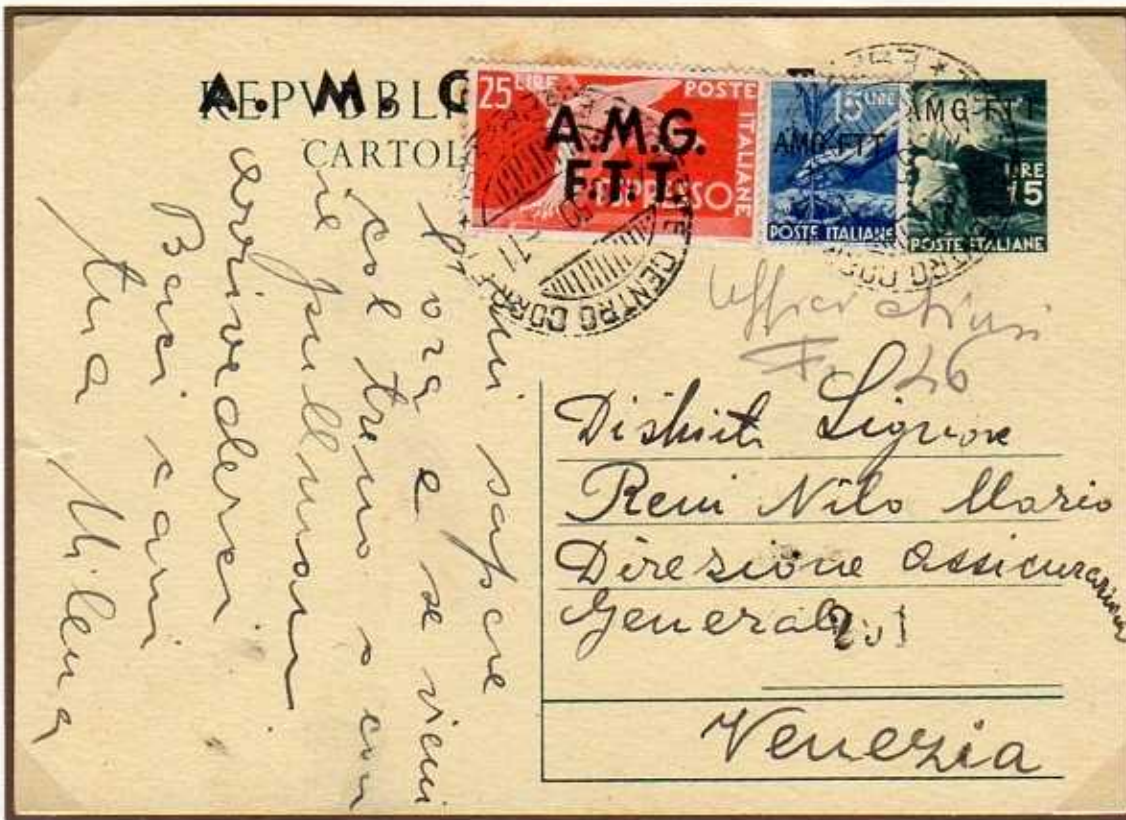 A. M. G
REPVBBLI
CARTOL
25 LIRE POSTE ITALIANE
A.M.G.
F.T.T.
ESPRESSO
15 LIRE
AMG-FTT
POSTE ITALIANE
AMG-FTT
LIRE
15
POSTE ITALIANE
CENTRO CORR
Uffici chiusi
26
Distinto Signore
Reni Nilo Mario
Direzione Assicurazioni
Generali
Venezia
mi sapere
l'ora e se vieni
col treno o con
il pullman
arrivederci
Baci cari
tua Milena